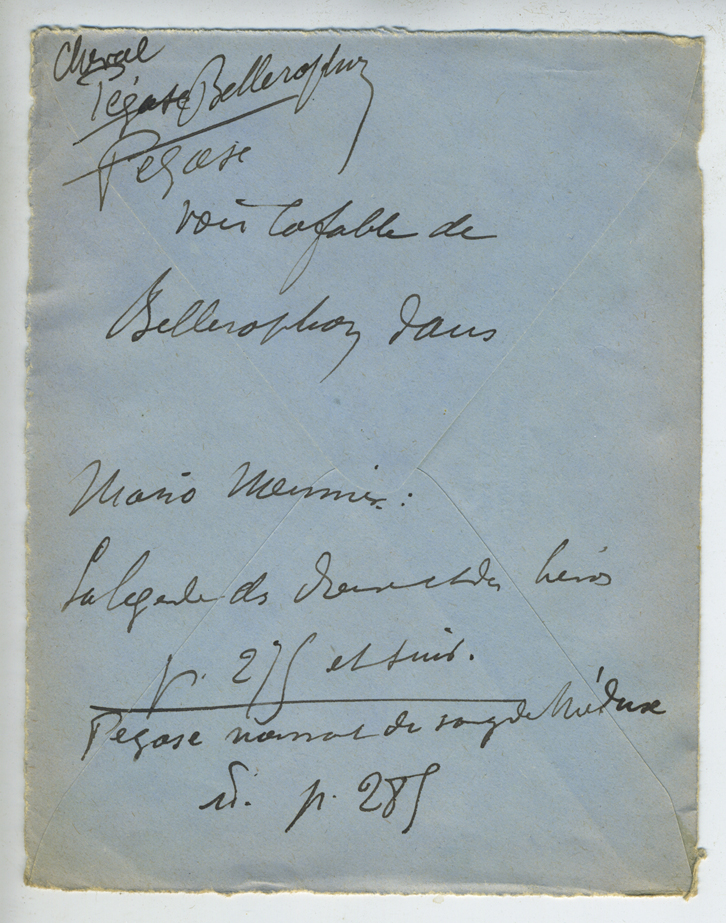 Cheval
Pégase Bellerophon
Pegase
voir la fable de
Bellerophon dans
Mario Meunier :
La legende des dieux et des héros
p. 275 et suiv.
Pegase naissant du sang de Méduse
id. p. 285